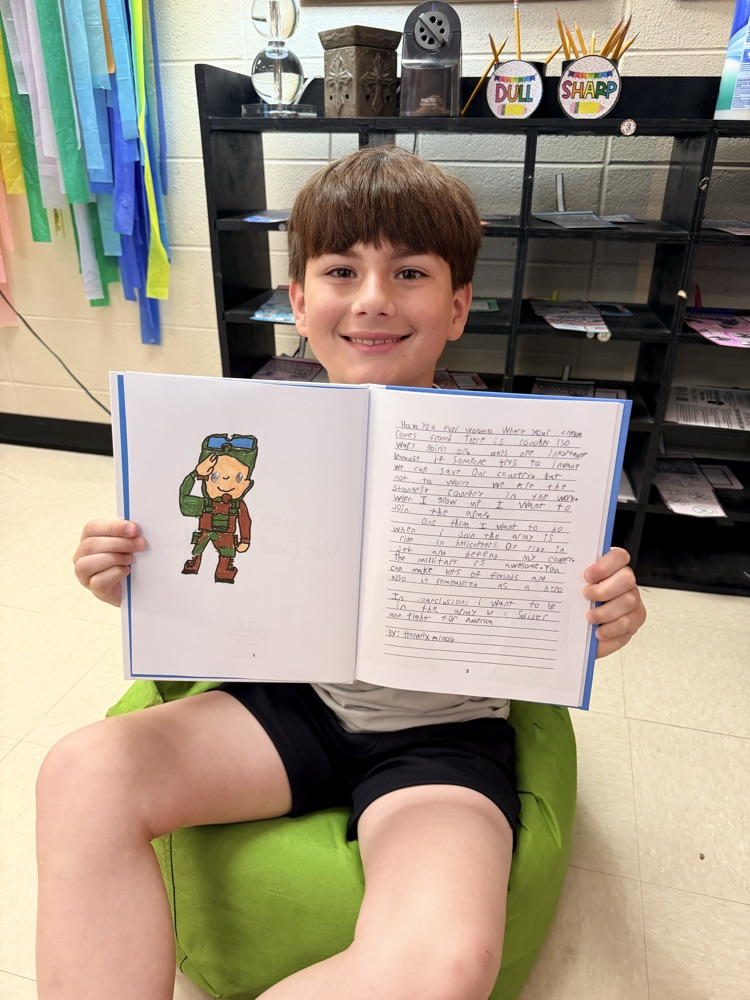 DULL
SHARP
Have you ever wonderd Where your freedom
comes from? There is roughly 130
wars going on. wars are important
because if someone trys to invade
we can save our country. But
not to worry we are the
strongest country in the world.
When I grow up I want to
join the army.
One thing I want to do
when i join the army is
ride in helicopters. Or ride in
jet and defend my country.
The military is awesome. You
can make lots of friends and
also be remembered as a hero
In conclusion, i want to be
in the army be a Solider
and fight for America
By: Hendrix
1
2